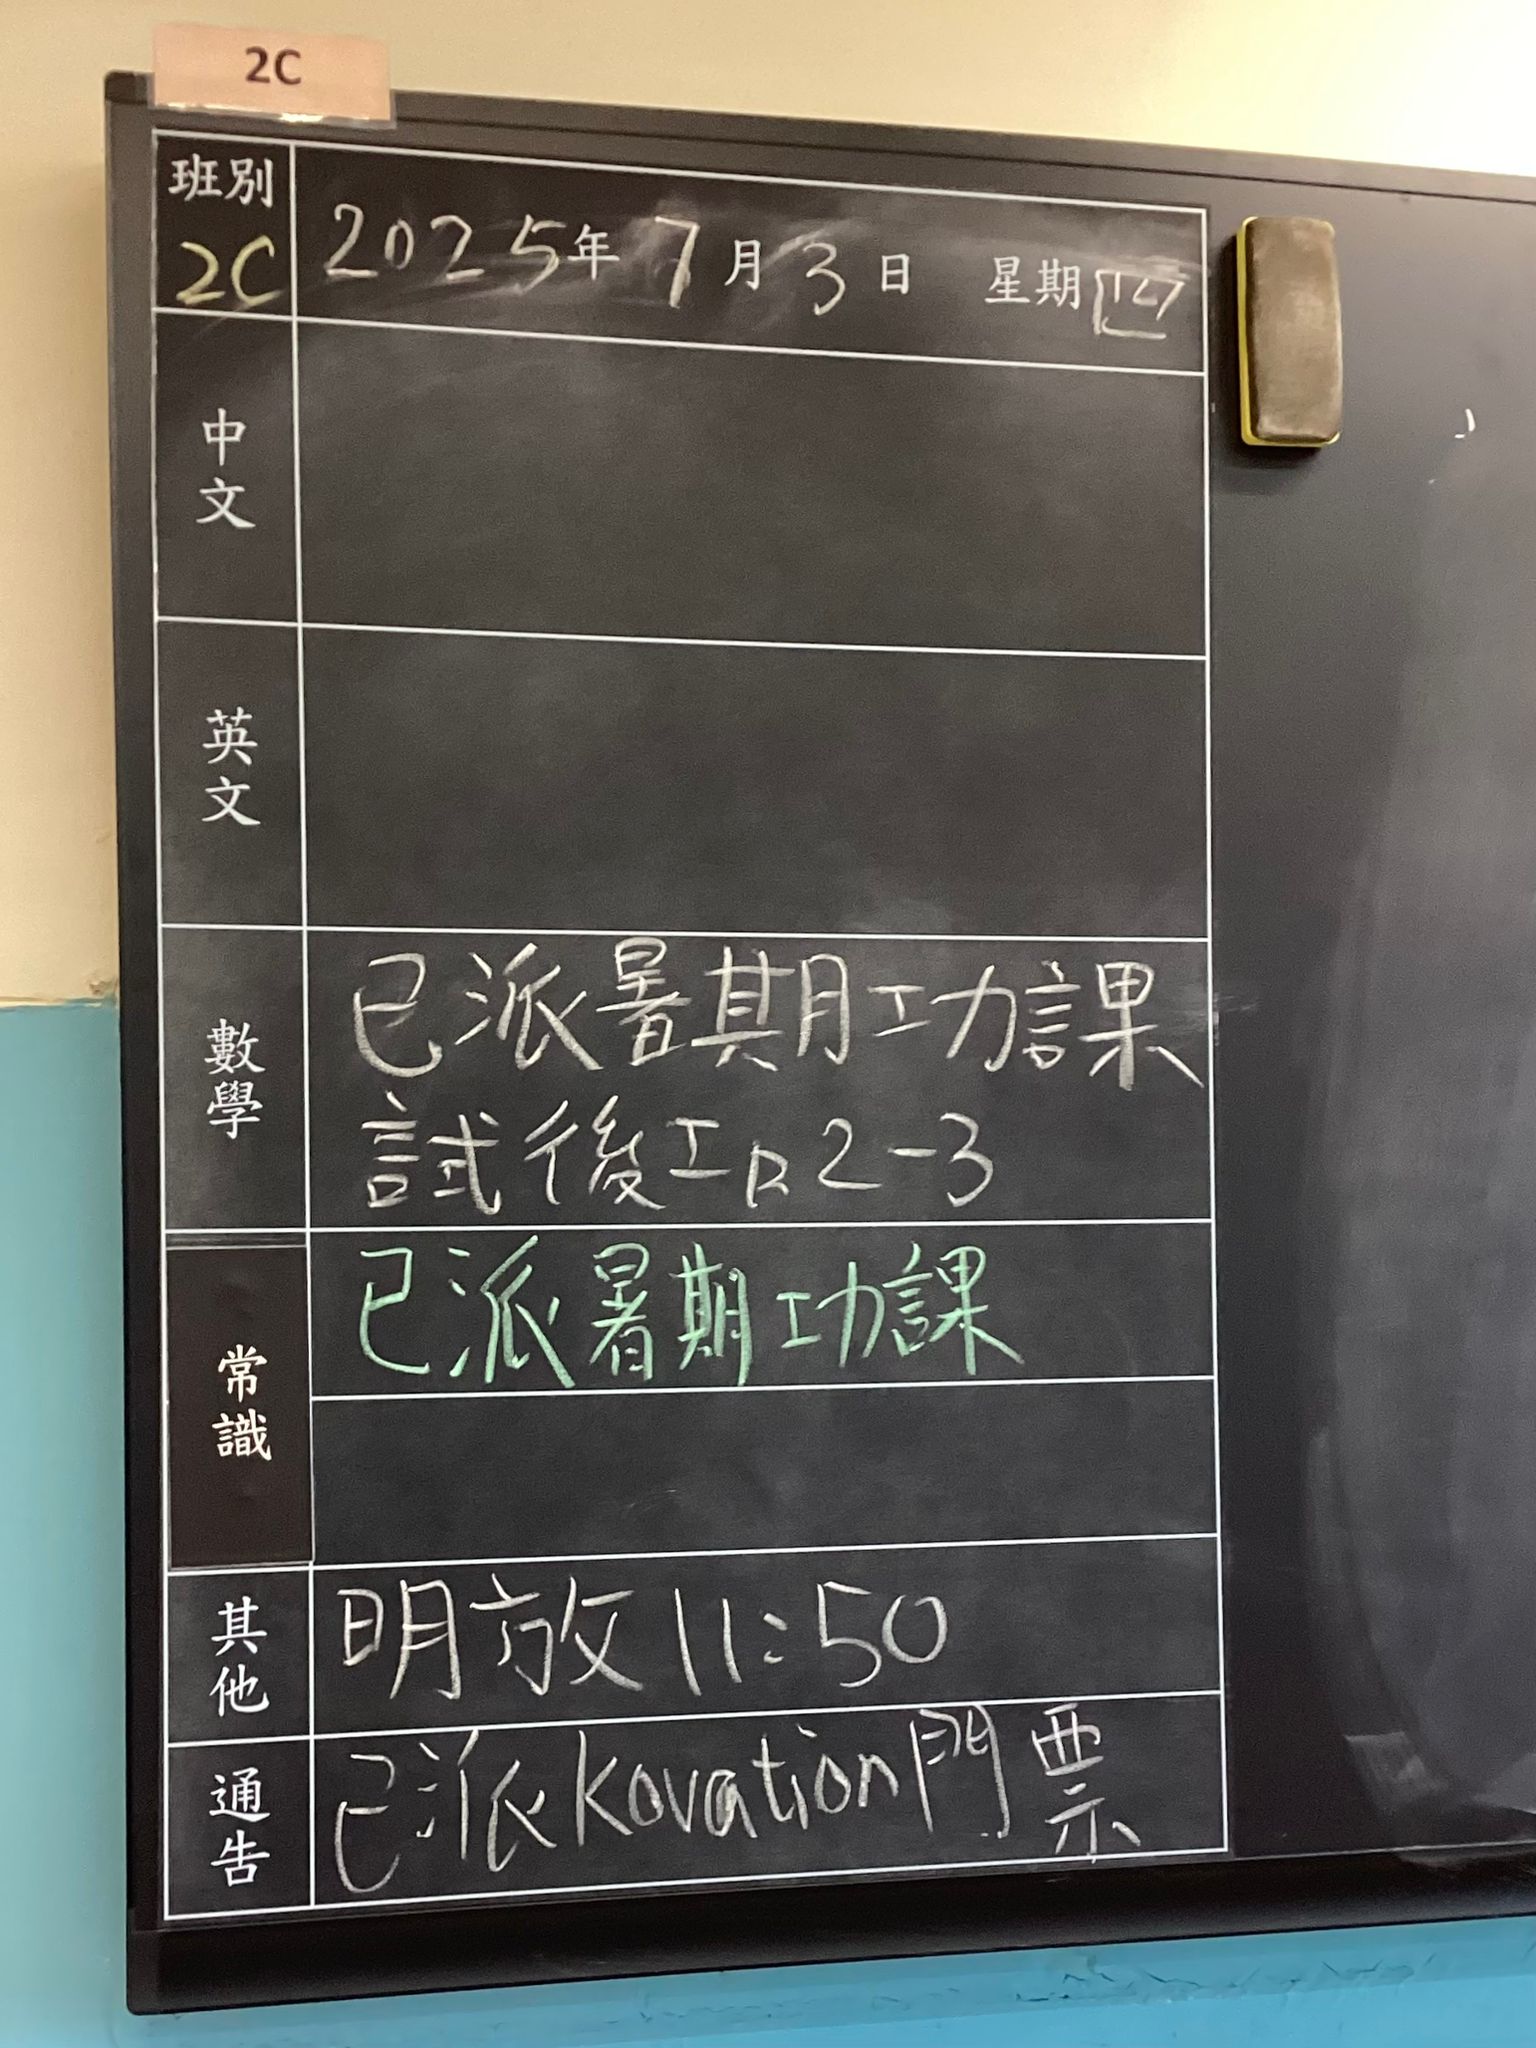 2C
班別
2C
2025年7月3日 星期四
中文
英文
數學
已派暑期功課
試後工p2-3
常識
已派暑期功課
其他
明放11:50
通告
已派kovation門票